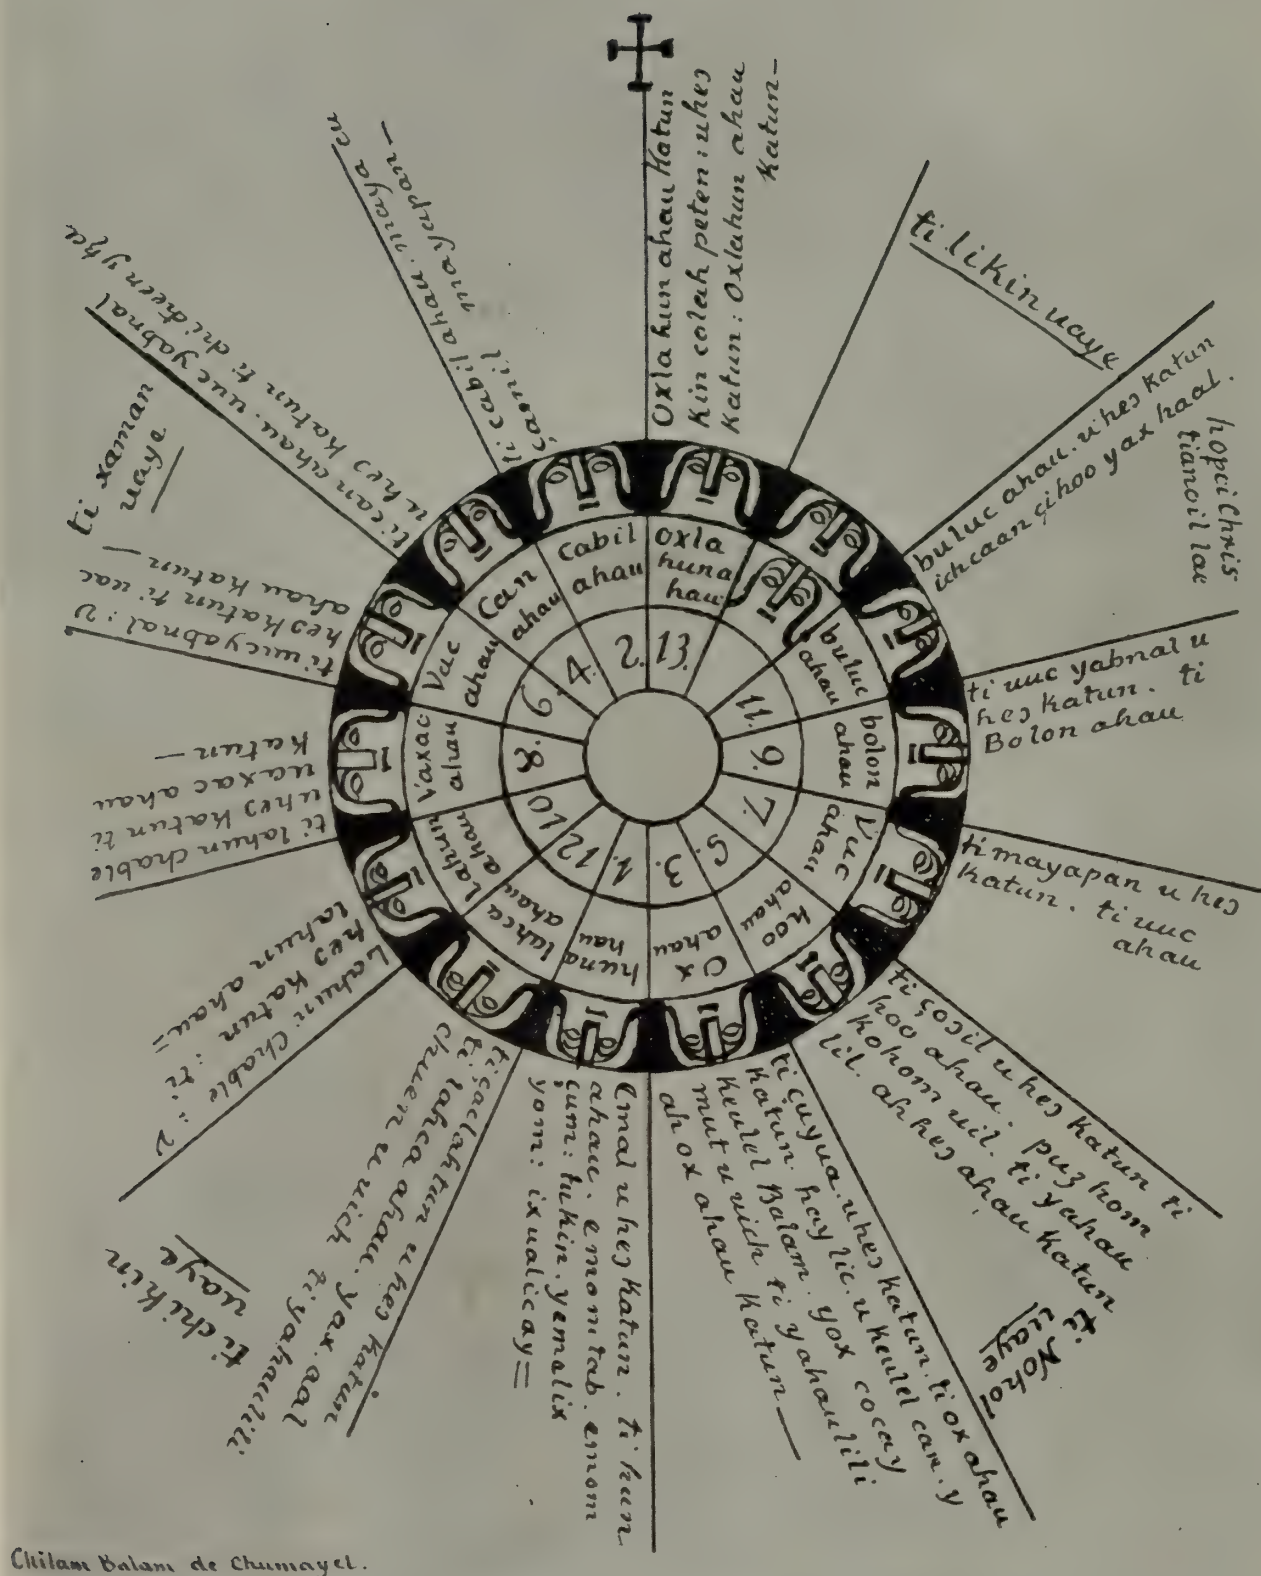 Oxlahun ahau Katun
Kin colah peten: uheɔ
Katun: Oxlahun ahau
Katun—
ti likin uaye
buluc ahau. u heɔ katun
ichcaan çihoo yax haal.
hopci Chris
tianoil lae
ti uuc yabnal u
heɔ katun. ti
Bolon ahau
ti mayapan u heɔ
katun. ti uuc
ahau
ti çoɔil u heɔ katun ti
hoo ahau. puz hom
kohom uil. ti yahau
lil. ah heɔ ahau katun
ti Nohol
uaye
ti cuyua. u heɔ katun. ti ox ahau
katun. hay lic. u keulel can. y
keulel Balam. yox cocay
mut u uich ti yahaulili
ah ox ahau katun—
Emal u heɔ katun. ti hun
ahau. emom tab. emom
çum: tukin. yemelix
yom: ixualicay=
ti çaclahtun u heɔ katun
ti. lahca ahau. yax. aal
chuen u uich ti yahaulili
ti chikin
uaye
Lahun Chable : u
heɔ katun : ti
lahun ahau=
ti lahun chable
u heɔ katun ti
uaxac ahau
katun—
ti uucyabnal: u
heɔ katun ti uac
ahau katun—
ti xaman
uaye
ti can ahau. uuc yabnal
u heɔ katun ti chicheen ytza
ti cabil ahau. maya cu
çamil mayapan—
oxla
huna
hau
buluc
ahau
bolon
ahau
Vuc
ahau
hoo
ahau
Ox
ahau
huna
hau
lahca
ahau
Lahun
ahau
Vaxac
ahau
Vac
ahau
Can
ahau
Cabil
ahau
13.
11.
9.
7.
5.
3.
1.
12
10
8.
6.
4.
2.
Chilam Balam de Chumayel.